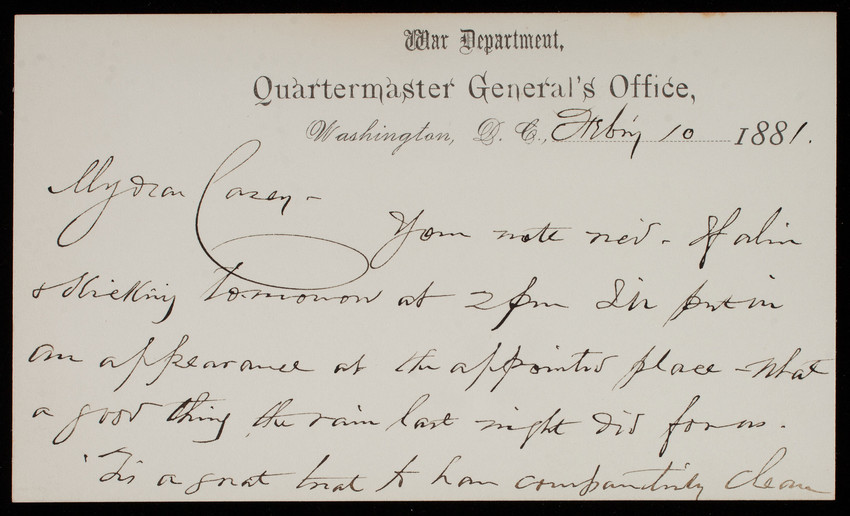 War Department,
Quartermaster General's Office,
Washington, D. C., Feb'y 10 1881.
My dear Casey -
Your note rec'd. If alive
& kicking tomorrow at 2 pm I'll put in
an appearance at the appointed place - What
a good thing the rain last night did for us.
'Tis a great treat to have comparatively clean